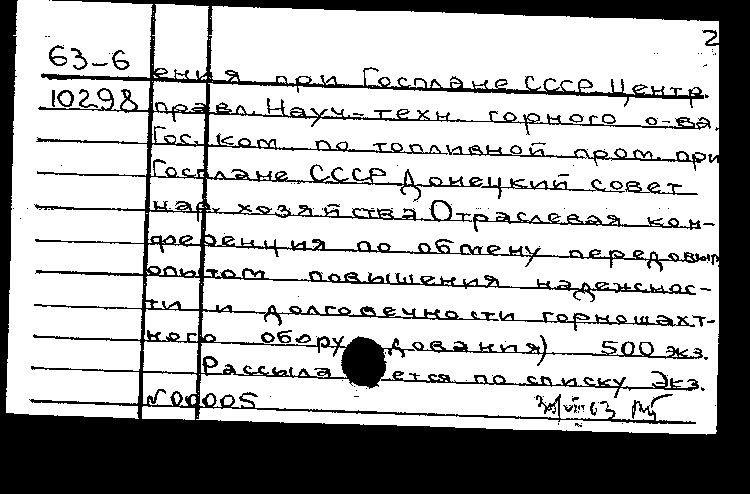 2
63-6 ения при Госплане СССР Центр.
10298 правл. Науч.-техн. горного о-ва.
Гос. ком. по топливной пром. при
Госплане СССР Донецкий совет
нар. хозяйства Отраслевая кон-
ференция по обмену передовым
опытом повышения надежнос-
ти и долговечности горношахт-
ного оборудования) 500 экз.
Рассылается по списку. Экз.
№00005